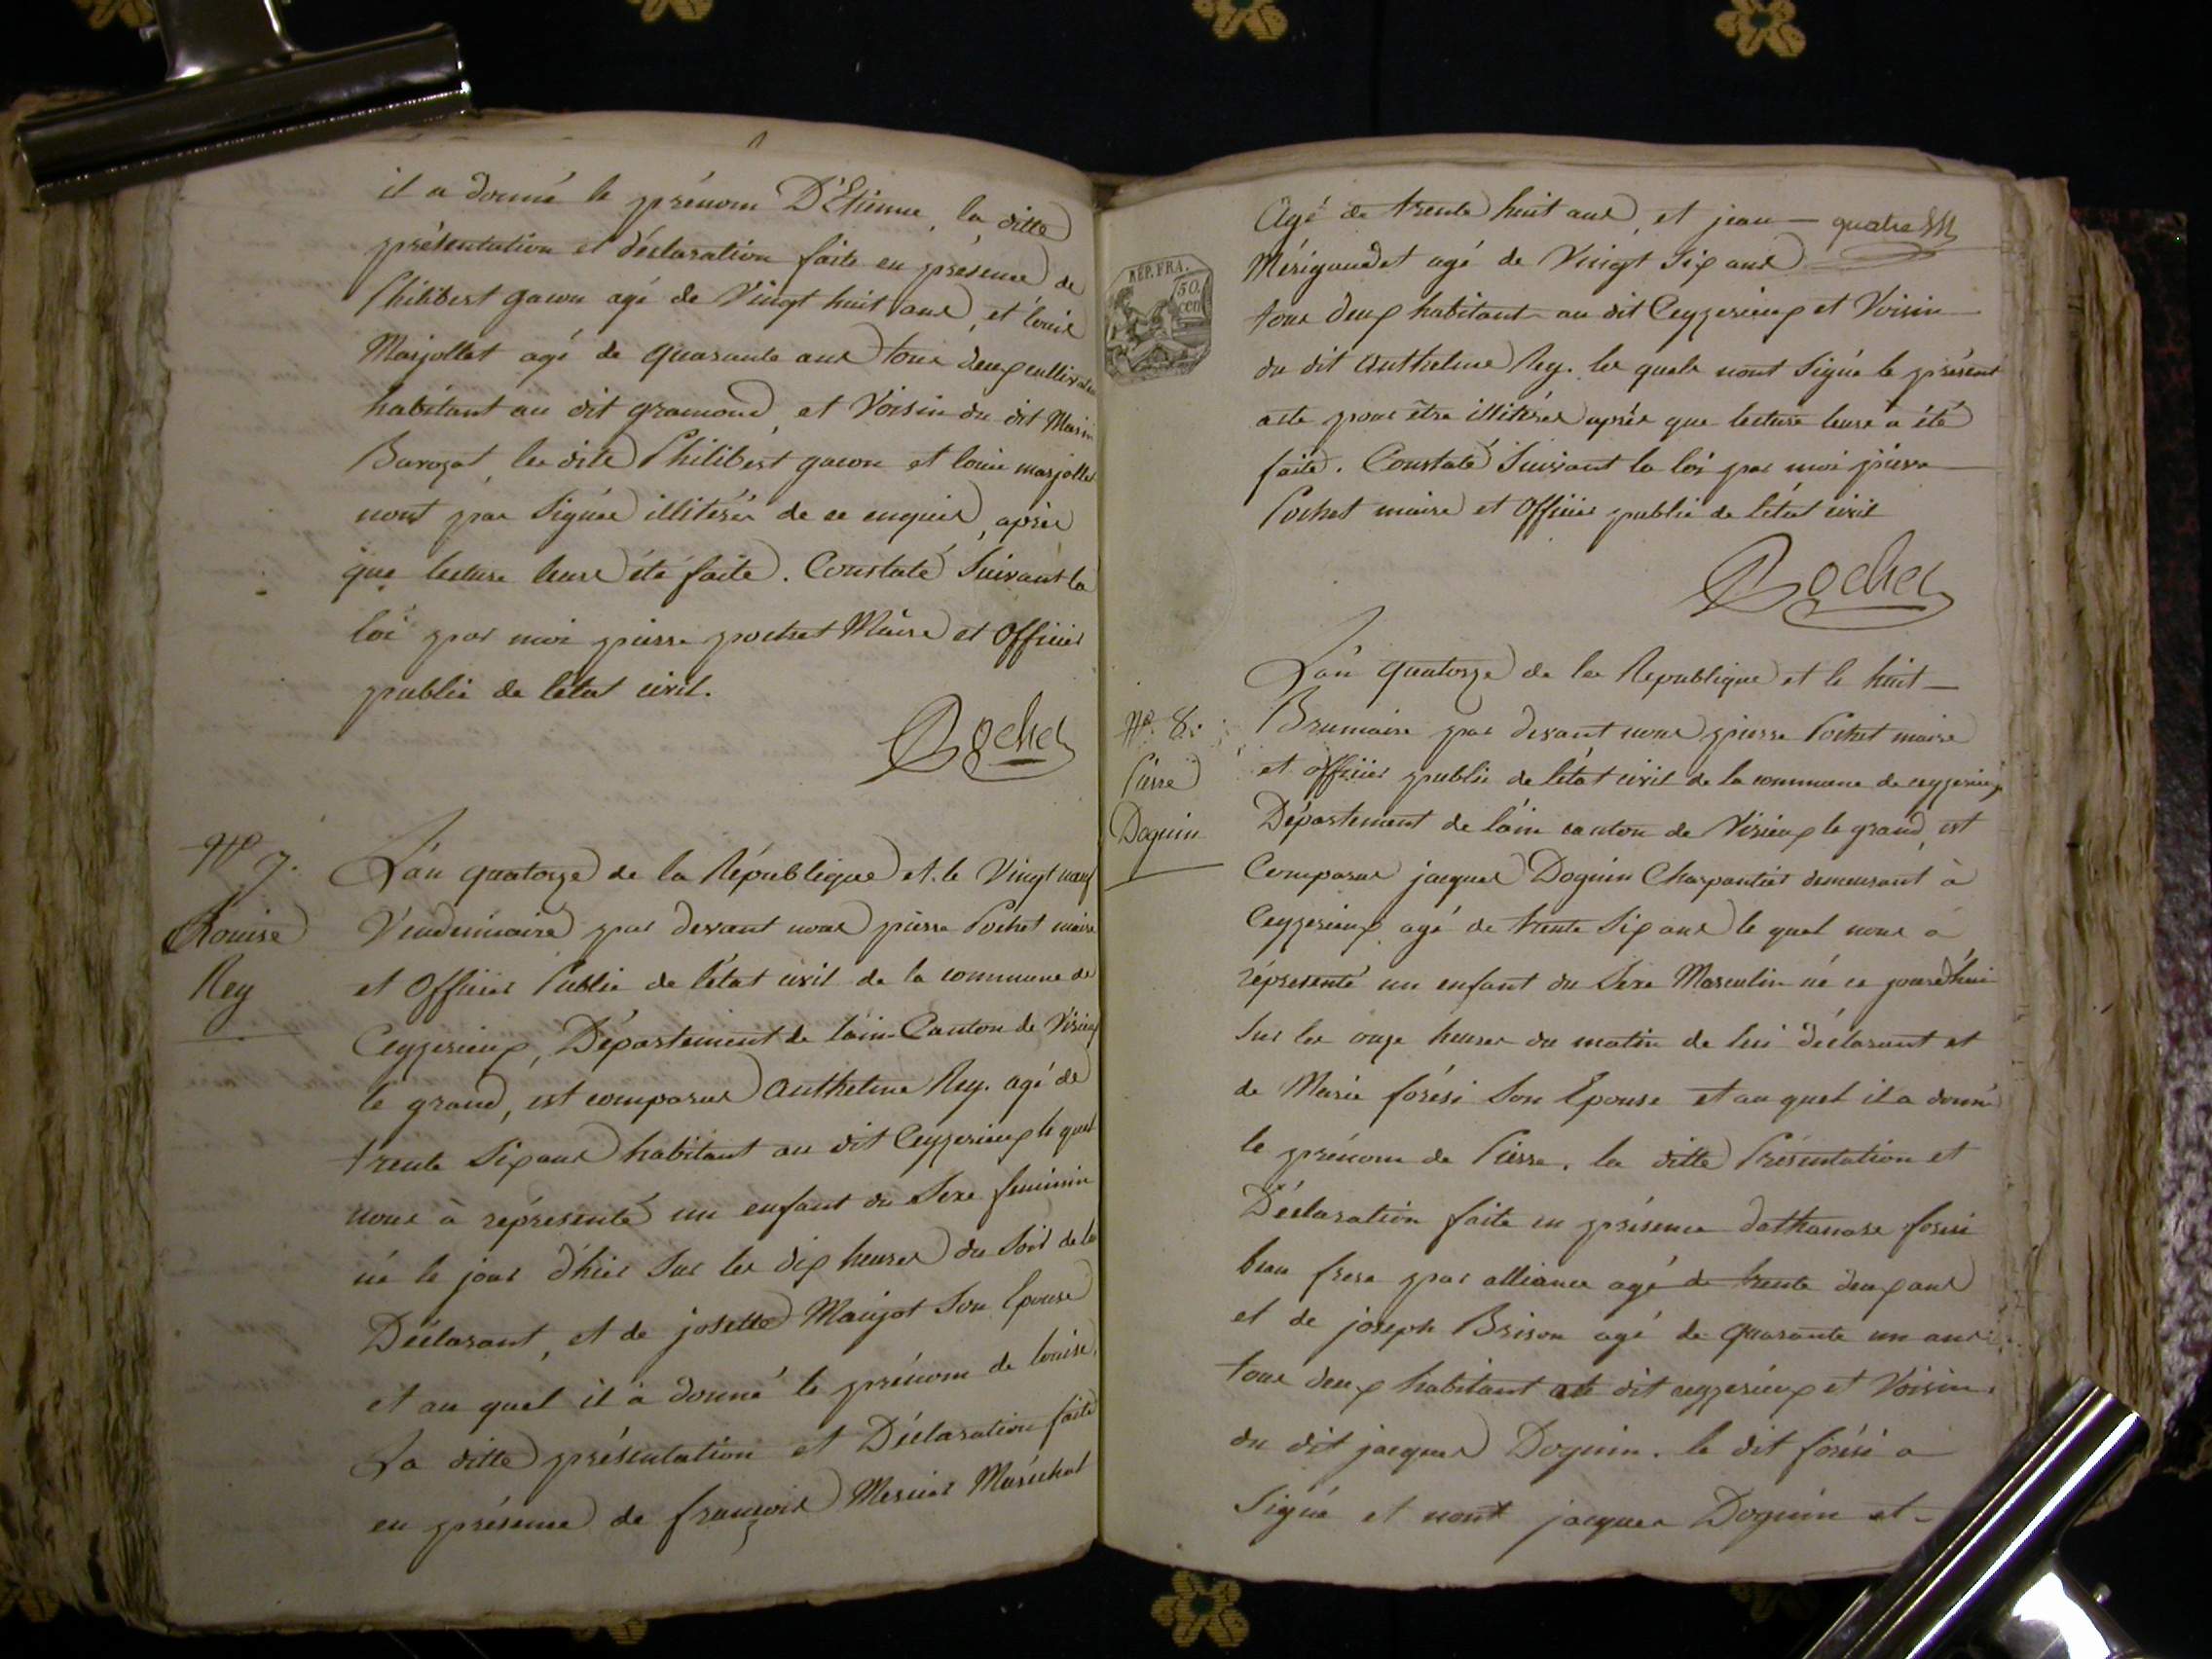 il a donné le prénom D'Etienne, la ditte
présentation et déclaration faite en présence de
Philibert gacon agé de Vingt huit ans, et louis
Marjollet agé de quarante ans tous deux cultivateu
habitant au dit gramond, et Voisin du dit Marin
Barozat, les dits Philibert gacon et louis marjollet
nont pas Signés illitérés de ce enquis, après
que lecture leurs été faite. Constaté Suivant la
loi par moi pierre pochet Maire et Officier
public de létat civil.
Pochet
N° 7.
Louise
Rey
L'an quatorze de la République et le Vingt neuf
Vendemiaire par devant nous pierre Pochet maire
et Officier Public de létat civil de la commune de
Ceyzerieux, Département de lain Canton de Virieux
le grand, est comparus Anthelme Rey. agé de
trente Six ans habitant au dit Ceyzerieux le quel
nous à réprésenté un enfant du Sexe feminin
né le jour d'hier Sur les dix heures du Soir de lui
Déclarant, et de josette Maujot Son Epouse
et au quel il à donné le prénom de louise.
La ditte présentation et Déclaration faite
en présence de françois Mercier Maréchal
Agé de trente huit ans, et jean — quatre
REP. FRA.
50
cen
Mérigaudet agé de Vingt Six ans
tous deux habitant au dit Ceyzerieux et Voisin
du dit Anthelme Rey. les quels nont Signé le présent
acte pour être illitérés après que lecture leurs à été
faite. Constaté Suivant la loi par moi pierre
Pochet maire et Officier public de létat civil
Pochet
N° 8.
Pierre
Doguin
L'an quatorze de la Republique et le huit —
Brumaire par devant nous pierre Pochet maire
et officier public de létat civil de la commune de ceyzerieux
Département de lain canton de Virieux le grand, est
Comparus jacques Doguin Charpantier demeurant à
Ceyzerieux agé de trente Six ans le quel nous à
réprésenté un enfant du Sexe Masculin né ce jourd'hui
Sur les onze heures du matin de lui déclarant et
de Marie forési Son Epouse et au quel il a donné
le prénom de Pierre. la ditte Présentation et
Déclaration faite en présence dathanase foresi
beau frere par alliance agé de trente deux ans
et de joseph Brison agé de quarante un ans
tous deux habitant au dit ceyzerieux et Voisin
du dit jacques Doguin. le dit forési a
Signé et nont jacques Doguin et —